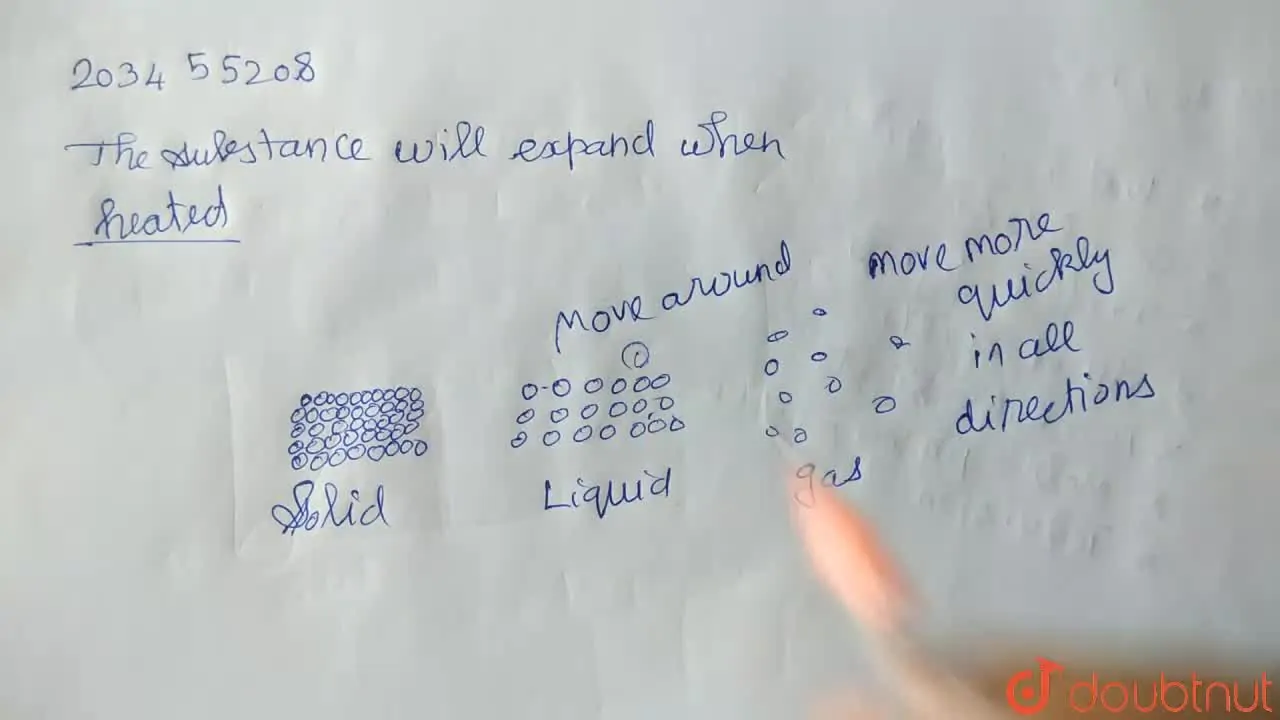 2034 55208
The substance will expand when
heated
move around
move more
quickly
in all
directions
Solid
Liquid
gas
doubtnut